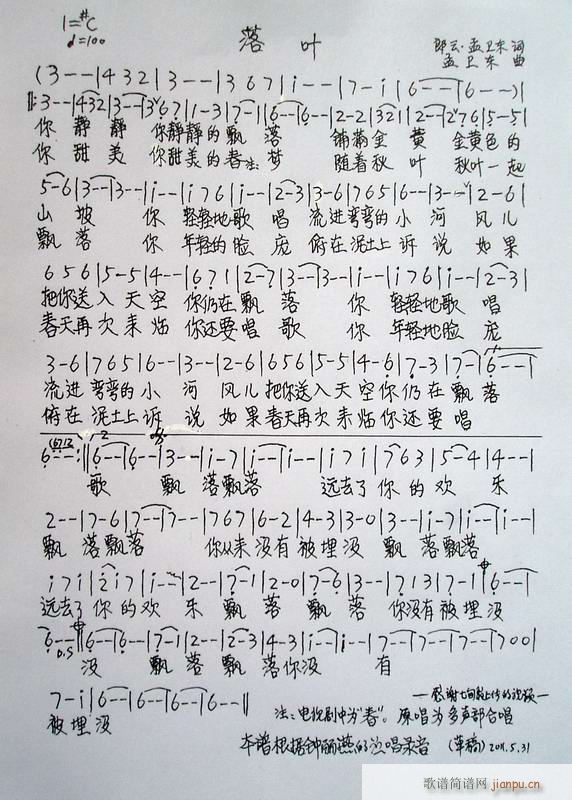 1=#C
♩=100
落叶
郎云·孟卫东 词
孟卫东 曲
(3 - - | 4 3 2 | 3 - - | 3 6 7 | i - - | 7 - i | 6 - - | 6 - -) |
‖: 3 - - | 4 3 2 | 3 - - | 3 6 7 | 1 - 3 | 7 - 1 | 6 - - | 6 - - | 2 - 2 | 3 2 1 | 2 - - | 2 7 6 | 5 - 5 |
你 静静 你静静的飘落 铺满金黄 金黄色的
你 甜美 你甜美的春注:梦 随着秋叶 秋叶一起
5 - 6 | 3 - - | 3 - - | i - - | i 7 6 | i - - | 2 - 3 | 3 - 6 | 7 6 5 | 6 - - | 3 - - | 2 - 6 |
山坡 你 轻轻地歌唱 流进弯弯的小河 风儿
飘落 你 年轻的脸庞 俯在泥土上诉说 如果
6 5 6 | 5 - 5 | 4 - - | 6 7 1 | 2 - 7 | 3 - - | 3 - - | i - - | i 7 6 | i - - | 2 - 3 |
把你送入天空 你仍在飘落 你 轻轻地歌唱
春天再次来临 你还要唱歌 你 年轻地脸庞
3 - 6 | 7 6 5 | 6 - - | 3 - - | 2 - 6 | 6 5 6 | 5 - 5 | 4 - 6 | 7 - 3 | 7 - 1 | 6 - - |
流进弯弯的小河 风儿把你送入天空你仍在飘落
俯在泥土上诉说 如果春天再次来临你还要唱
6 - - :‖ 6 - - | 6 - - | 3 - - | i - 7 | i - - | i - - | i 7 i | 7 6 3 | 5 - 4 | 4 - - |
歌 飘落飘落 远去了你的欢乐
2 - - | 7 - 6 | 7 - - | 7 - - | 3 6 7 | 6 - 2 | 4 - 3 | 3 - 0 | 3 - - | i - 7 | i - - | i - - |
飘落飘落 你从来没有被埋没 飘落飘落
i 7 i | 2 i 7 | i - - | 2 - - | 7 - 1 | 2 - 0 | 7 - 6 | 3 - - | 7 1 3 | 7 - 1 | 6 - - |
远去了你的欢乐飘落飘落 你没有被埋没
6 - - ‖ 6 - - | 6 - - | 7 - 1 | 2 - - | 2 - 3 | 4 - 3 | i - - | i - - | 7 - - | 7 - - | 7 - - | 7 0 0 |
D.S
没 飘落飘落你没 有
7 - i | 6 - - | 6 - - | 6 - - | 6 - - ‖
被埋没
注:电视剧中为"春"。原唱为多声部合唱
本谱根据钟丽燕的演唱录音 (草稿) 2011.5.31
歌谱简谱网
jianpu.cn